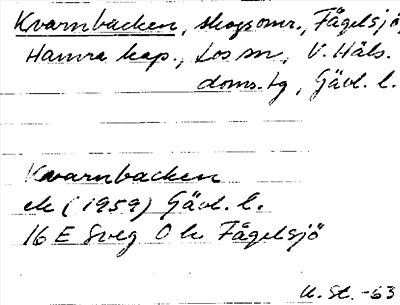 Kvarnbacken, skogsomr., Fågelsjö,
Hamra kap., Los sn, V. Häls.
doms.tg, Gävl. l.
Kvarnbacken
ek (1959) Gävl. l.
16 E Sveg O h Fågelsjö
U. St. -63